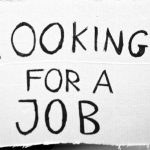 OOKING
FOR A
JOB